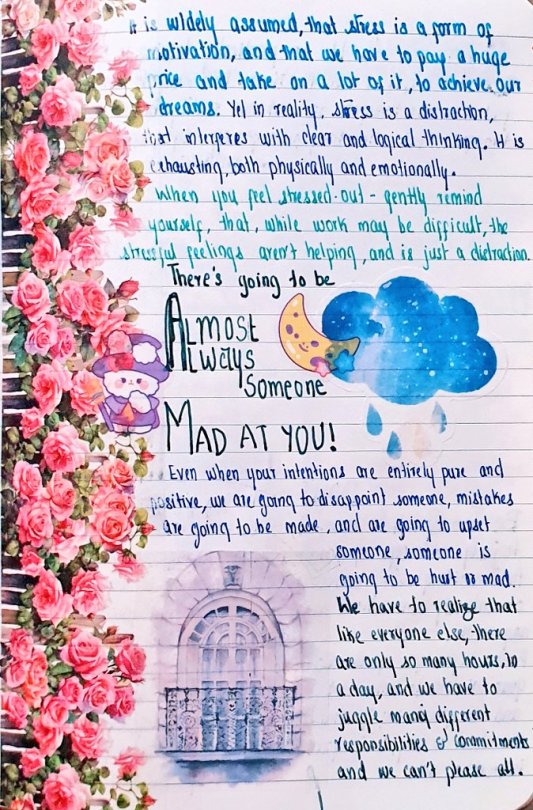 It is widely assumed, that stress is a form of
motivation, and that we have to pay a huge
price and take on a lot of it, to achieve our
dreams. Yet in reality, stress is a distraction,
that interferes with clear and logical thinking. It is
exhausting, both physically and emotionally.
When you feel stressed-out - gently remind
yourself, that, while work may be difficult, the
stressful feelings aren't helping, and is just a distraction.
There's going to be
Almost
Always
Someone
MAD AT YOU!
Even when your intentions are entirely pure and
positive, we are going to disappoint someone, mistakes
are going to be made, and are going to upset
someone, someone is
going to be hurt or mad.
We have to realize that
like everyone else, there
are only so many hours, in
a day, and we have to
juggle many different
responsibilities & commitments
and we can't please all.